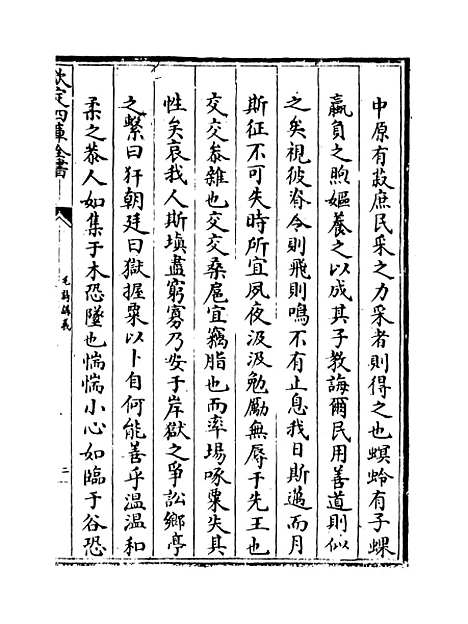 中原有菽庶民采之力采者則得之也螟蛉有子蜾
蠃負之煦嫗養之以成其子教誨爾民用善道則似
之矣視彼脊令則飛則鳴不有止息我日斯邁而月
斯征不可失時所宜夙夜汲汲勉勵無辱于先王也
交交叅雜也交交桑扈宜竊脂也而率場啄粟失其
性矣哀我人斯填盡窮寡乃安于岸獄之爭訟鄉亭
之繫曰犴朝廷曰獄握粟以卜自何能善乎温温和
柔之恭人如集于木恐墜也惴惴小心如臨于谷恐
欽定四庫全書
毛詩講義
二